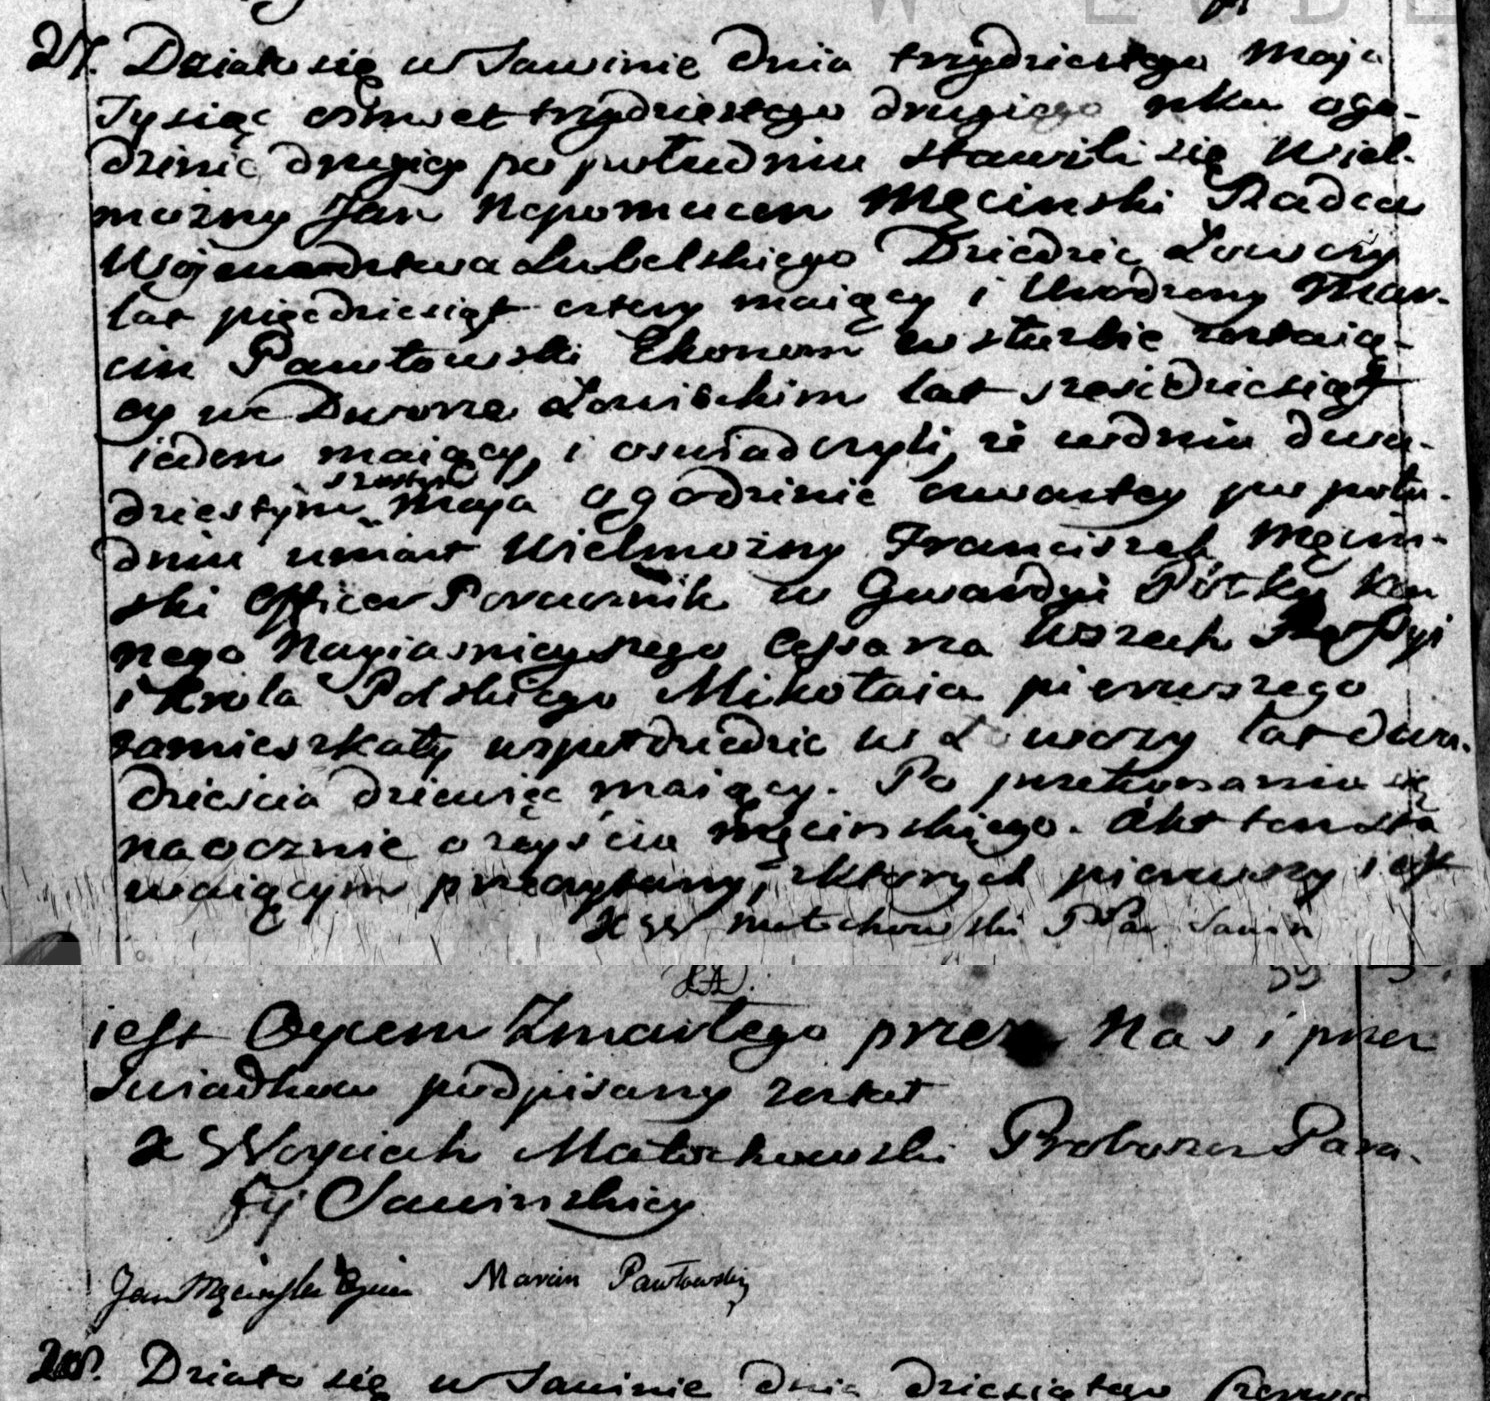 27. Działo się w Sawinie dnia trzydziestego Maja
Tysiąc osmset trzydziestego drugiego roku ogo-
dzinie drugiey po południu stawili się Wiel-
możny Jan Nepomucen Męcinski Radca
Wojewodztwa Lubelskiego Dziedzic Łowczy
lat pięcdziesiąt cztery maiący i Urodzony Mar-
cin Pawłowski Ekonom w służbie zostaią-
cy we Dworze Łowickim lat szescdziesiąt
ieden maiący, i oswiadczyli, że wdniu dwu-
dziestym szostym Maja o godzinie czwartey po połu-
dniu umarł Wielmożny Franciszek Męcin-
ski Officer Porucznik w Gwardyi Półku Kon
nego Nayiasnieyszego Cesarza Wszech Rossyi
i Krola Polskiego Mikołaia pierwszego
zamieszkały wspołdziedzic w Łowczy lat dwa-
dziescia dziewięc maiący. Po przekonaniu się
naocznie o zeyściu Męcinskiego. Akt ten sta
waiącym przeczytany, zktorych pierwszy iest
X W Małochowski P Par Sawin
iest Oycem Zmarłego przez Nas i przez
Swiadkow podpisany został
X Woyciech Małochowski Proboszcz Para-
fij Sawinskiey
Jan Męcinski Oyciec Marcin Pawłowski
28. Działo się w Sawinie dnia dziesiątego Czerwca